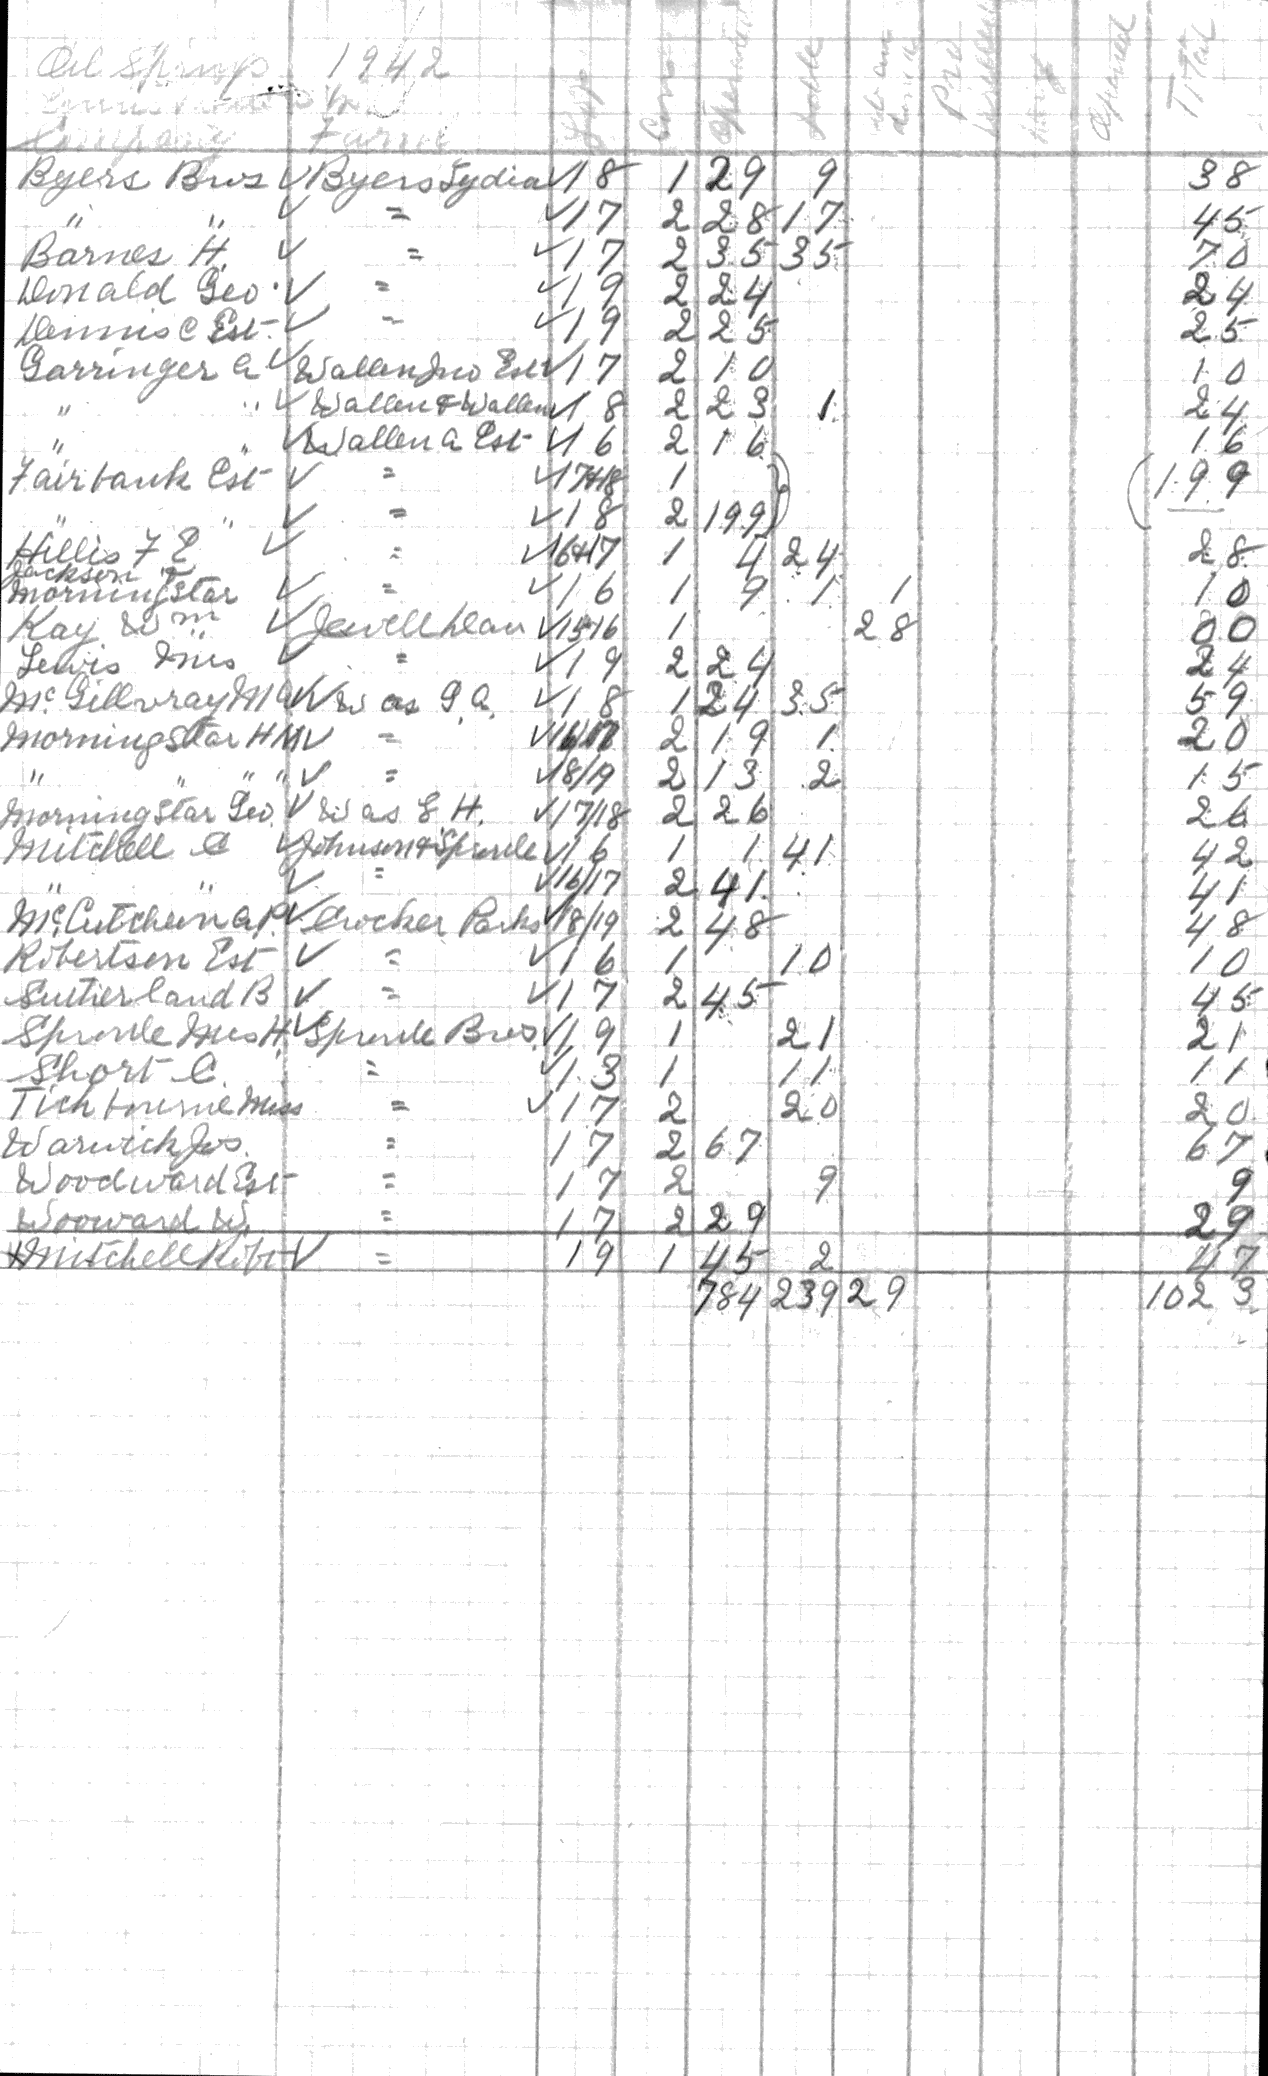 Oil Springs 1942
Company Farm Lot Con Operated Idle Total
Byers Bros ✓ Byers Lydia ✓ 18 1 29 9 38
" " ✓ = ✓ 17 2 28 17 45
Barnes H. ✓ = ✓ 17 2 35 35 70
Donald Geo. ✓ = ✓ 19 2 24 24
Dennis C Est. ✓ = ✓ 19 2 25 25
Garringer A ✓ Wallen Jno Est ✓ 17 2 10 10
" " ✓ Wallen & Wallen ✓ 18 2 23 1 24
" " ✓ Wallen A Est ✓ 16 2 16 16
Fairbank Est ✓ = ✓ 17+18 1 (199
" " ✓ = ✓ 18 2 199)
Hillis F E ✓ = ✓ 16+17 1 4 24 28
Jackson &
Morningstar ✓ = ✓ 16 1 9 1 1 10
Kay Wm ✓ Jewell Dan ✓ 15+16 1 28 00
Lewis Mrs ✓ = ✓ 19 2 24 24
McGillvray M A ✓ Was G.A. ✓ 18 1 24 35 59
Morningstar H M ✓ = ✓ 16/17 2 19 1 20
" " " " ✓ = ✓ 18/19 2 13 2 15
Morningstar Geo. ✓ Was E H. ✓ 17/18 2 26 26
Mitchell C ✓ Johnson & Sproule ✓ 16 1 1 41 42
" " ✓ = ✓ 16/17 2 41 41
McCutcheon A.P. ✓ Crocker Parks ✓ 18/19 2 48 48
Robertson Est ✓ = ✓ 16 1 10 10
Sutherland B ✓ = ✓ 17 2 45 45
Sproule Mrs H. ✓ Sproule Bros. ✓ 19 1 21 21
Short C. = ✓ 13 1 11 11
Tichbourne Miss = ✓ 17 2 20 20
Warwick Jos. = 17 2 67 67
Woodward Est = 17 2 9 9
Wooward W. = 17 2 29 29
Mitchell Robt ✓ = 19 1 45 2 47
784 239 29 1023